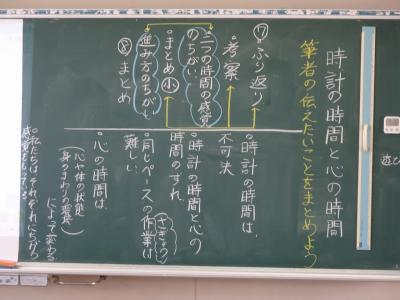 時計の時間と心の時間
筆者の伝えたいことをまとめよう
⑦ふり返り
・考察
二つの時間の感覚
のちがい
・まとめ小
進み方のちがい
⑧まとめ
・時計の時間は、
不可決
・時計の時間と心の
時間のずれ
さぎょう
・同じペースの作業は
難しい
・心の時間は、
心や体の状態
身のまわりの環境
によって変わる
・私たちはそれぞれにちがう
感覚をもっている
遊び